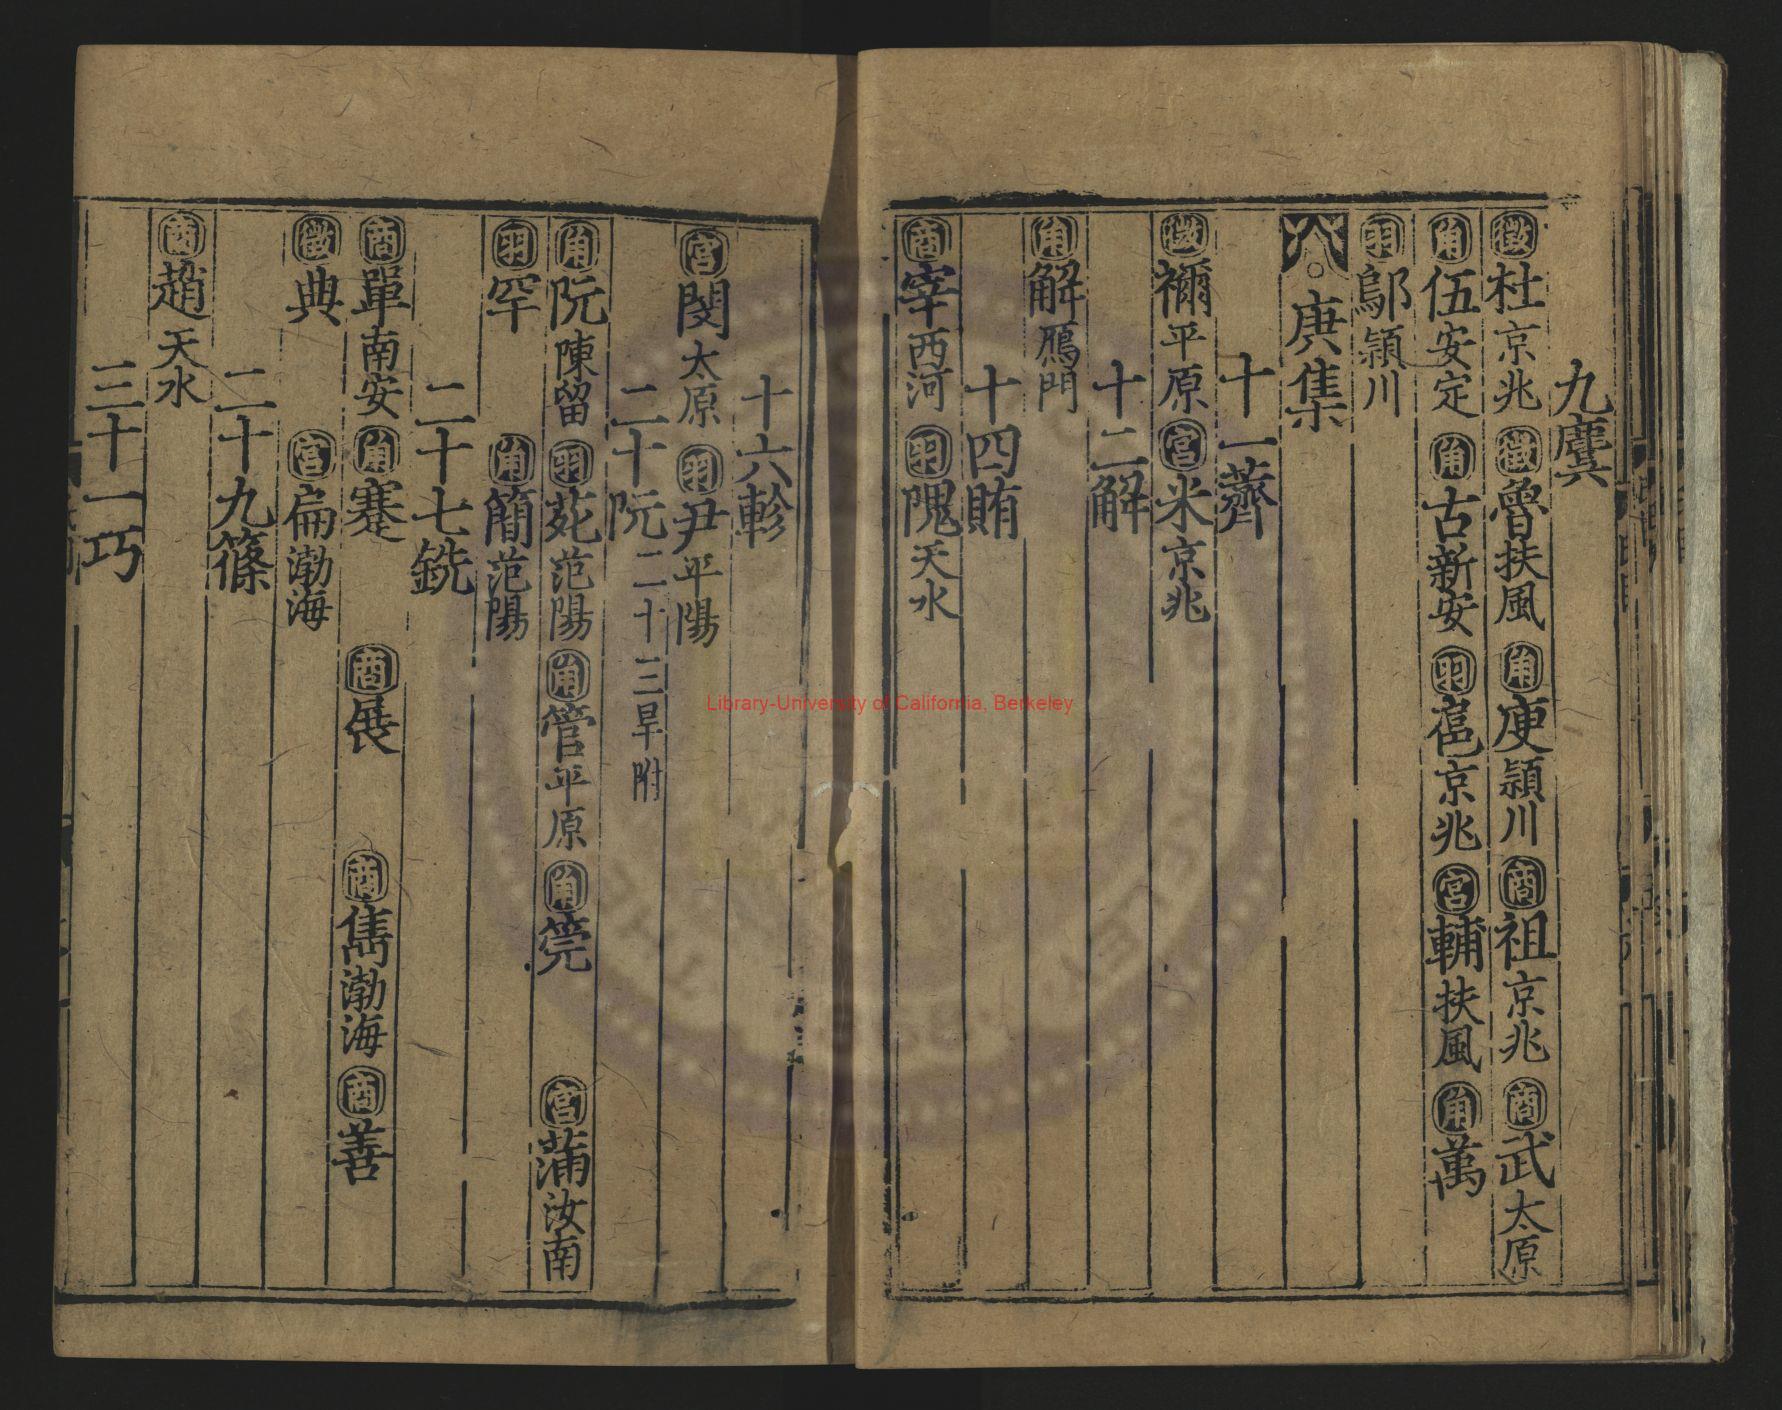 九麌
徵杜京兆 徵魯扶風 角庾潁川 商祖京兆 商武太原
角伍安定 角古新安 羽扈京兆 宮輔扶風 角萬
羽鄔潁川
庚集
十一薺
徵禰平原 宮米京兆
十二解
角解鴈門
十四賄
商宰西河 羽隗天水
十六軫
宮閔太原 羽尹平陽
二十阮 二十三旱附
角阮陳留 羽苑范陽 角管平原 角筦 宮蒲汝南
羽罕 角簡范陽
二十七銑
商單南安 角蹇 商展 商雋渤海 商善
徵典 宮扁渤海
二十九篠
商趙天水
三十一巧
Library-University of California, Berkeley